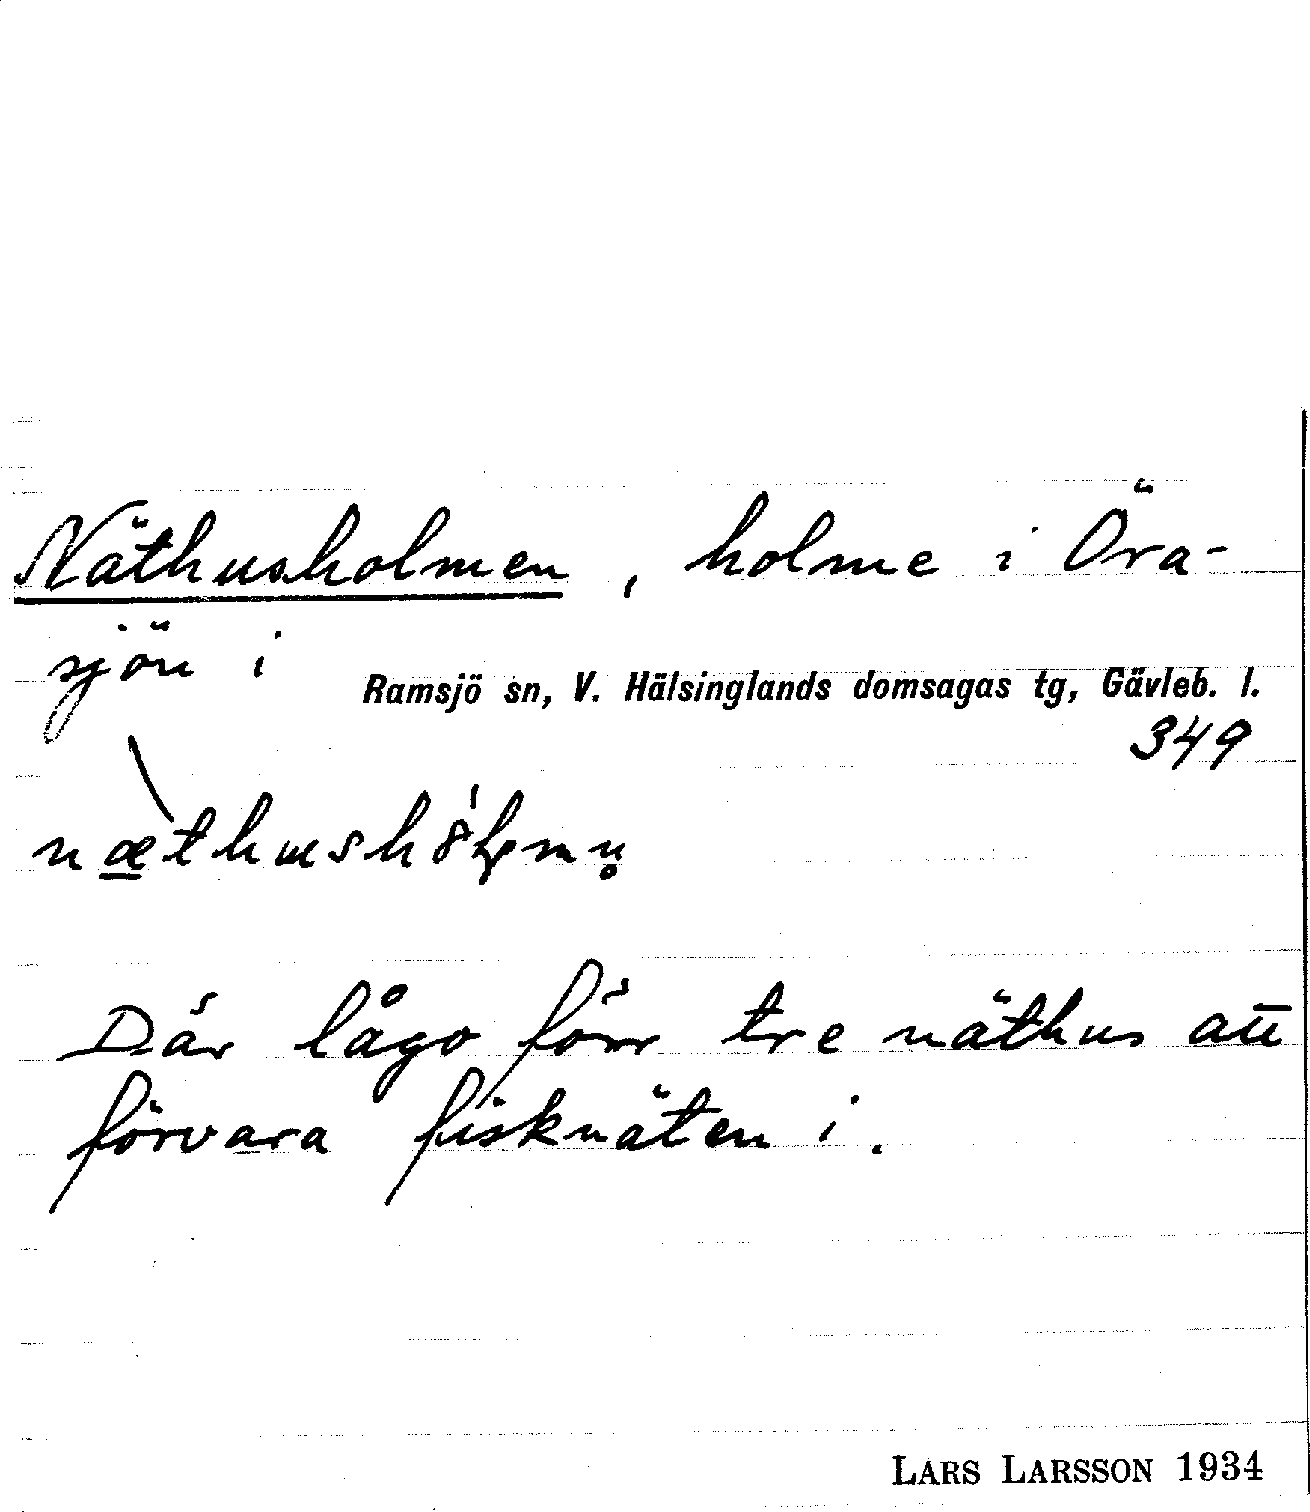 Näthusholmen, holme i Öra-
sjön i
Ramsjö sn, V. Hälsinglands domsagas tg, Gävleb. l.
349
Där lågo förr tre näthus att
förvara fisknäten i.
LARS LARSSON 1934